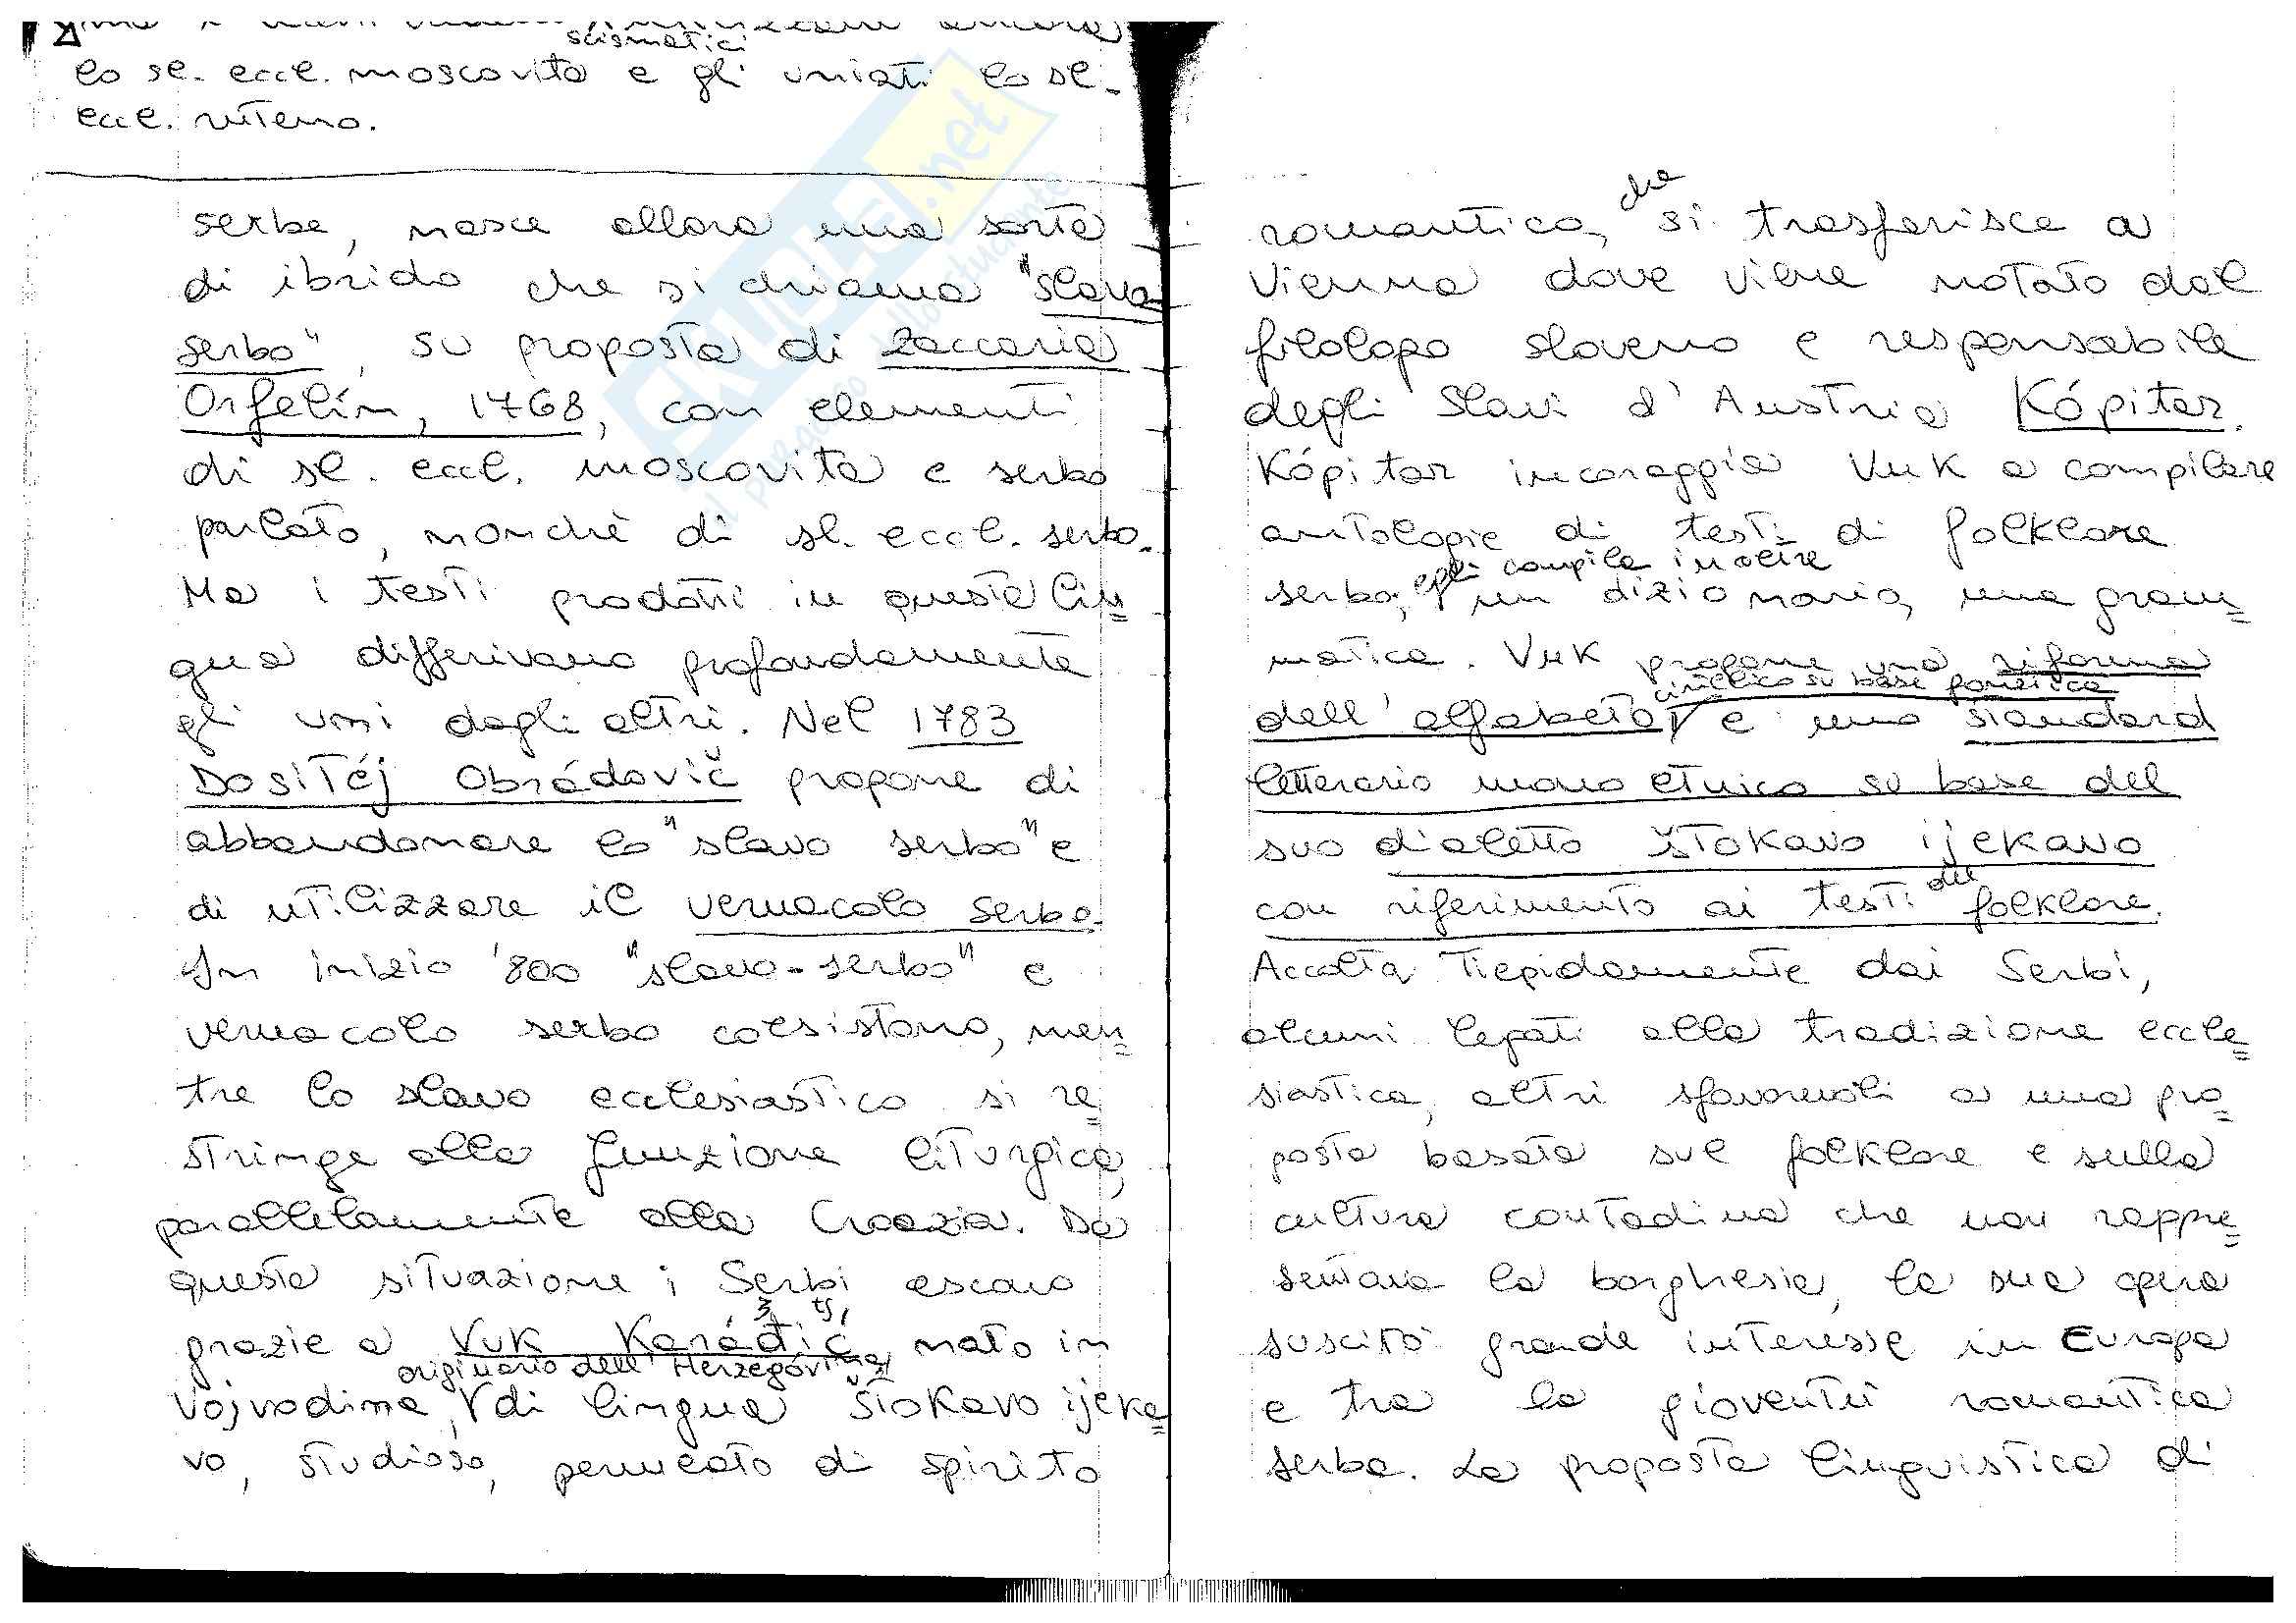 scismatici
lo sl. eccl. moscovita e gli uniati lo sl.
eccl. ruteno.
serbe, nasce allora una sorta
di ibrido che si chiama "slavo
serbo", su proposta di Zaccaria
Orfelín, 1768, con elementi
di sl. eccl. moscovita e serbo
parlato, nonchè di sl. eccl. serbo.
Ma i testi prodotti in questa lin=
gua differivano profondamente
gli uni dagli altri. Nel 1783
Dositéj Obrádovič propone di
abbandonare lo "slavo serbo" e
di utilizzare il vernacolo serbo.
In inizio '800 "slavo-serbo" e
vernacolo serbo coesistono, men=
tre lo slavo ecclesiastico si re=
stringe alla funzione liturgica,
parallelamente alla Croazia. Da
questa situazione i Serbi escano
grazie a Vuk Karáđić nato in
originario dell'Herzegóvina
Vojvodina, di lingua štokavo ijeka=
vo, studioso, permeato di spirito
romantico, che si trasferisce a
Vienna dove viene notato dal
filologo sloveno e responsabile
degli Slavi d'Austria Kópitar.
Kópitar incoraggia Vuk a compilare
antologie di testi di folklore
egli compila inoltre
serbo, un dizionario, una gram=
matica. Vuk propone una riforma
cirillico su base fonetica
dell'alfabeto e uno standard
letterario mono etnico su base del
suo dialetto štokavo ijekavo
con riferimento ai testi del folklore.
Accolta tiepidamente dai Serbi,
alcuni legati alla tradizione eccle=
siastica, altri sfavorevoli a una pro=
posta basata sul folklore e sulla
cultura contadina che non rappre=
sentava la borghesia, la sua opera
suscitò grande interesse in Europa
e tra la gioventù romantica
serba. La proposta linguistica di
SKUOLA.net
il paradiso dello studente